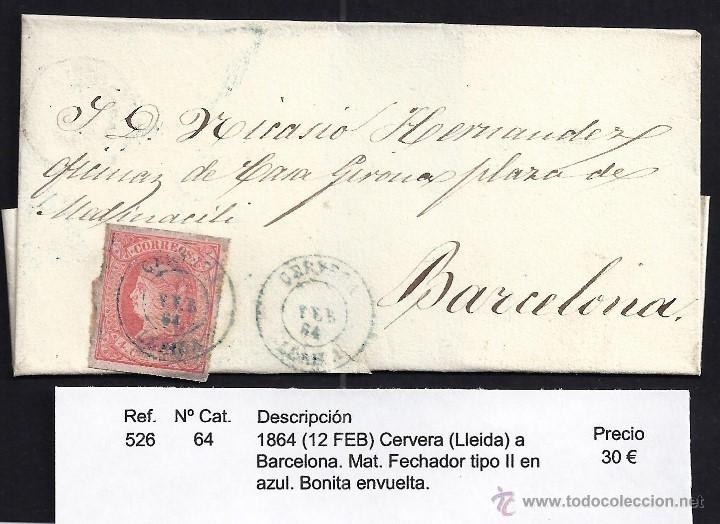 S D. Nicasio Hernandez
oficinas de Casa Girona plaza de
Barcelona.
CORREOS
FEB
64
CERVERA
FEB
64
LERIDA
Ref. Nº Cat. Descripción Precio
526 64 1864 (12 FEB) Cervera (Lleida) a 30 €
Barcelona. Mat. Fechador tipo II en
azul. Bonita envuelta.
www.todocoleccion.net